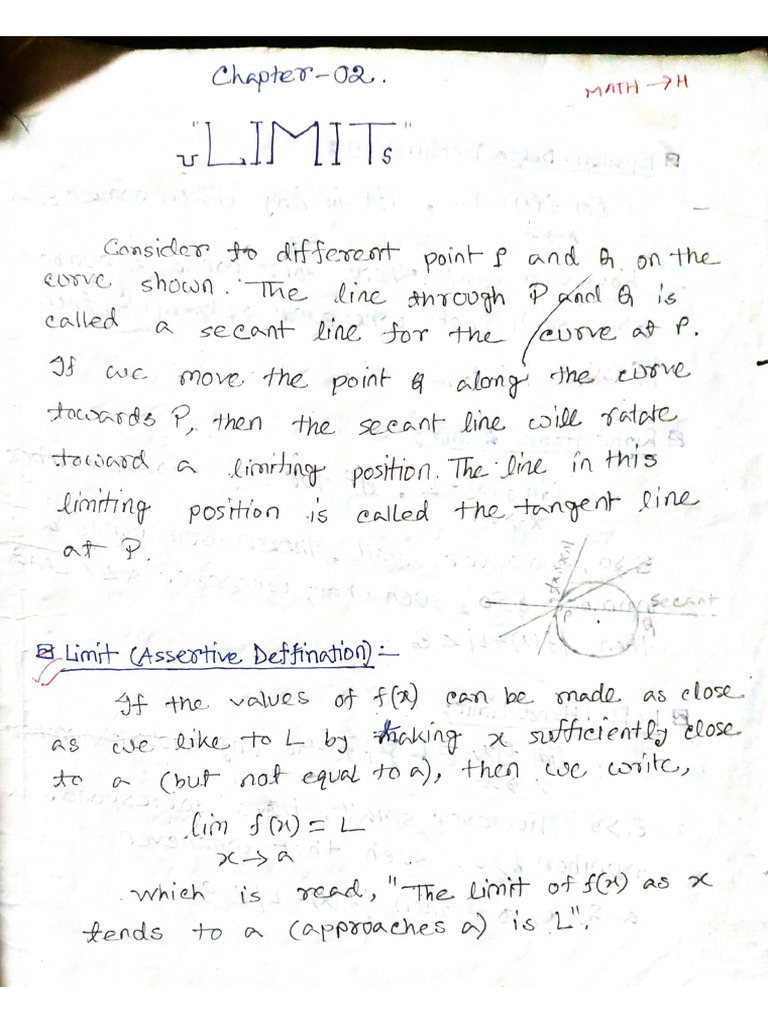 Chapter-02.
MATH → H
"LIMITs"
Consider to different point P and Q on the
curve shown. The line through P and Q is
called a secant line for the curve at P.
If we move the point Q along the curve
towards P, then the secant line will ratate
toward a limiting position. The line in this
limiting position is called the tangent line
at P.
P
secant
Q
Limit (Assertive Deffination):-
If the values of f(x) can be made as close
as we like to L by making x sufficiently close
to a (but not equal to a), then we write,
lim f(x) = L
x→a
which is read, "The limit of f(x) as x
tends to a (approaches a) is L".